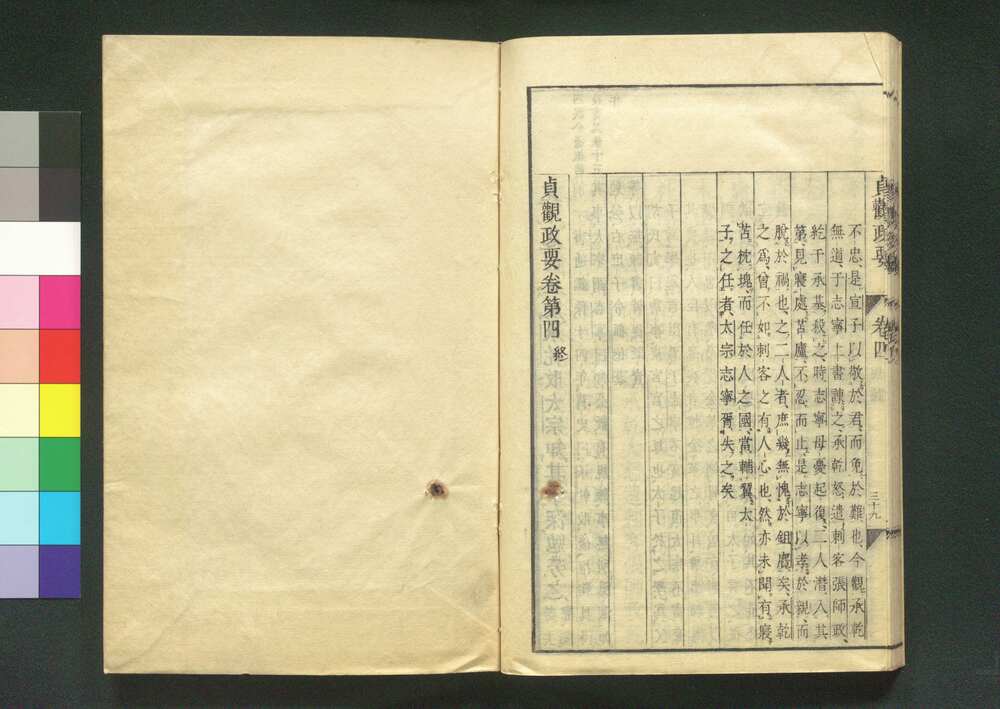 貞觀政要
卷四
三十九
不忠、是宣子以敬於君、而免於難也、今觀承乾
無道、于志寧上書諫之、承乾怒、遣刺客張師政、
紇干承基、殺之、時志寧母憂起復、二人潛入其
第、見寢處苫廬、不忍而止、是志寧以孝於親、而
脫於禍也、之二人者、庶幾無愧於鉏麑矣、承乾
之爲、曾不如刺客之有人心也、然亦未聞有寢
苫枕塊、而任於人之國、當輔翼太
子之任者、太宗志寧胥失之矣
貞觀政要卷第四 終